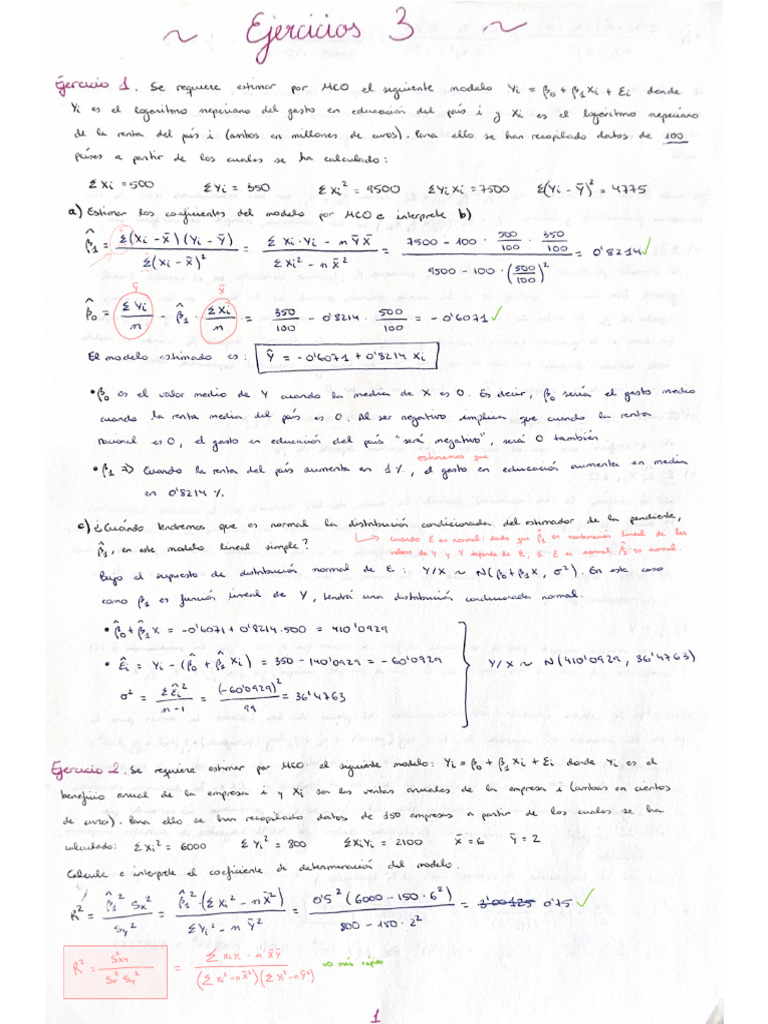 ~ Ejercicios 3 ~
Ejercicio 1. Se requiere estimar por MCO el siguiente modelo Yi = β0 + β1Xi + Ei donde
Yi es el logaritmo neperiano del gasto en educación del país i y Xi es el logaritmo neperiano
de la renta del país i (ambos en millones de euros). Para ello se han recopilado datos de 100
países a partir de los cuales se ha calculado:
ΣXi = 500 ΣYi = 350 ΣXi² = 9500 ΣYiXi = 7500 Σ(Yi - Ȳ)² = 4775
a) Estimar los coeficientes del modelo por MCO e interprete b)
β̂1 = Σ(Xi - X̄)(Yi - Ȳ) / Σ(Xi - X̄)² = ΣXi·Yi - nȲX̄ / ΣXi² - nX̄² = 7500 - 100 · 500/100 · 350/100 / 9500 - 100 · (500/100)² = 0'8214 ✓
Ȳ X̄
β̂0 = ΣYi/n - β̂1 · ΣXi/n = 350/100 - 0'8214 · 500/100 = -0'6071 ✓
El modelo estimado es: Ŷ = -0'6071 + 0'8214 Xi
• β0 es el valor medio de Y cuando la media de X es 0. Es decir, β0 sería el gasto medio
cuando la renta media del país es 0. Al ser negativo implica que cuando la renta
nacional es 0, el gasto en educación del país "será negativo", será 0 también
estimamos que
• β1 => Cuando la renta del país aumenta en 1%, el gasto en educación aumenta en media
en 0'8214 %.
c) ¿Cuándo tendremos que es normal la distribución condicionada del estimador de la pendiente,
β̂1, en este modelo lineal simple?
cuando E es normal: dado que β̂1 es combinación lineal de los
valores de Y y Y depende de E, si E es normal β̂1 es normal.
Bajo el supuesto de distribución normal de E : Y/X ~ N(β0 + β1X, σ²). En este caso
como β1 es función lineal de Y, tendrá una distribución condicionada normal.
• β̂0 + β̂1X = -0'6071 + 0'8214.500 = 410'0929
• Êi = Yi - (β̂0 + β̂1Xi) = 350 - 410'0929 = -60'0929
Y/X ~ N(410'0929, 36'4763)
σ² = ΣÊi² / n-1 = (-60'0929)² / 99 = 36'4763
Ejercicio 2. Se requiere estimar por MCO el siguiente modelo: Yi = β0 + β1Xi + Ei donde Yi es el
beneficio anual de la empresa i y Xi son las ventas anuales de la empresa i (ambas en cientos
de euro). Para ello se han recopilado datos de 150 empresas a partir de los cuales se ha
calculado: ΣXi² = 6000 ΣYi² = 800 ΣXiYi = 2100 X̄ = 6 Ȳ = 2
Calcule e interprete el coeficiente de determinación del modelo.
R² = β̂1² Sx² / Sy² = β̂1² · (ΣXi² - nX̄²) / ΣYi² - nȲ² = 0'5² (6000 - 150 · 6²) / 800 - 150 · 2² = 0'75 ✓
R² = S²xy / Sx² Sy² = ΣXiYi - nX̄Ȳ / (ΣXi² - nX̄²)(ΣYi² - nȲ²) → más rápido
1